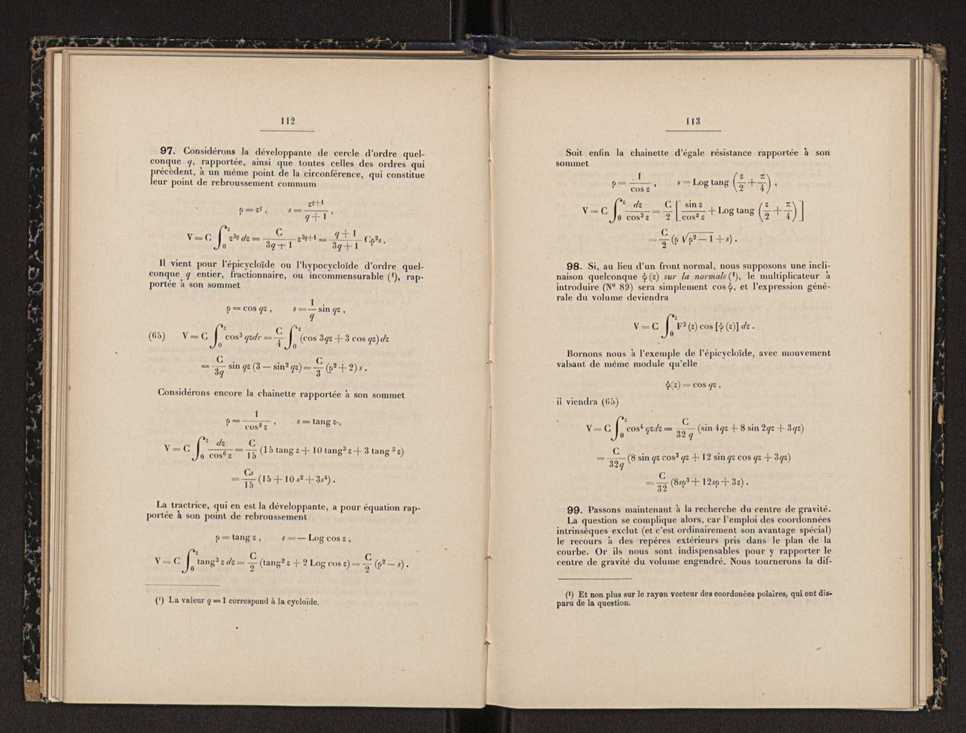 112
97. Considérons la développante de cercle d'ordre quel-
conque q, rapportée, ainsi que toutes celles des ordres qui
précèdent, à un même point de la circonférence, qui constitue
leur point de rebroussement commun
ρ = z^q , s = z^{q+1}/(q + 1) ,
V = C ∫_0^z z^{3q} dz = C/(3q + 1) z^{3q+1} = (q + 1)/(3q + 1) Cρ²s .
Il vient pour l'épicycloïde ou l'hypocycloïde d'ordre quel-
conque q entier, fractionnaire, ou incommensurable (¹), rap-
portée à son sommet
ρ = cos qz , s = 1/q sin qz ,
(65) V = C ∫_0^z cos³ qzdr = C/4 ∫_0^z (cos 3qz + 3 cos qz) dz
= C/3q sin qz (3 — sin² qz) = C/3 (ρ² + 2) s .
Considérons encore la chainette rapportée à son sommet
ρ = 1/cos² z , s = tang z ,
V = C ∫_0^z dz/cos⁶ z = C/15 (15 tang z + 10 tang³ z + 3 tang ⁵ z)
= Cs/15 (15 + 10 s² + 3s⁴) .
La tractrice, qui en est la développante, a pour équation rap-
portée à son point de rebroussement
ρ = tang z , s = — Log cos z ,
V = C ∫_0^z tang³ z dz = C/2 (tang² z + 2 Log cos z) = C/2 (ρ² — s) .
(¹) La valeur q = 1 correspond à la cycloïde.
113
Soit enfin la chainette d'égale résistance rapportée à son
sommet
ρ = 1/cos z , s = Log tang (z/2 + π/4) ,
V = C ∫_0^z dz/cos³ z = C/2 [ sin z/cos² z + Log tang (z/2 + π/4) ]
= C/2 (ρ √(ρ² — 1) + s) .
98. Si, au lieu d'un front normal, nous supposons une incli-
naison quelconque ψ (z) sur la normale (¹), le multiplicateur à
introduire (N° 89) sera simplement cos ψ, et l'expression géné-
rale du volume deviendra
V = C ∫_0^z F³ (z) cos [ψ (z)] dz .
Bornons nous à l'exemple de l'épicycloïde, avec mouvement
valsant de même module qu'elle
ψ(z) = cos qz ,
il viendra (65)
V = C ∫_0^z cos⁴ qzdz = C/32 q (sin 4qz + 8 sin 2qz + 3qz)
= C/32q (8 sin qz cos³ qz + 12 sin qz cos qz + 3qz)
= C/32 (8sρ³ + 12sρ + 3z) .
99. Passons maintenant à la recherche du centre de gravité.
La question se complique alors, car l'emploi des coordonnées
intrinsèques exclut (et c'est ordinairement son avantage spécial)
le recours à des repères extérieurs pris dans le plan de la
courbe. Or ils nous sont indispensables pour y rapporter le
centre de gravité du volume engendré. Nous tournerons la dif-
(¹) Et non plus sur le rayon vecteur des coordonées polaires, qui ont dis-
paru de la question.